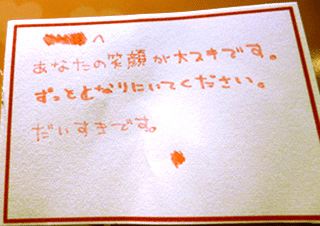 へ
あなたの笑顔が大スキです。
ずっととなりにいてください。
だいすきです。